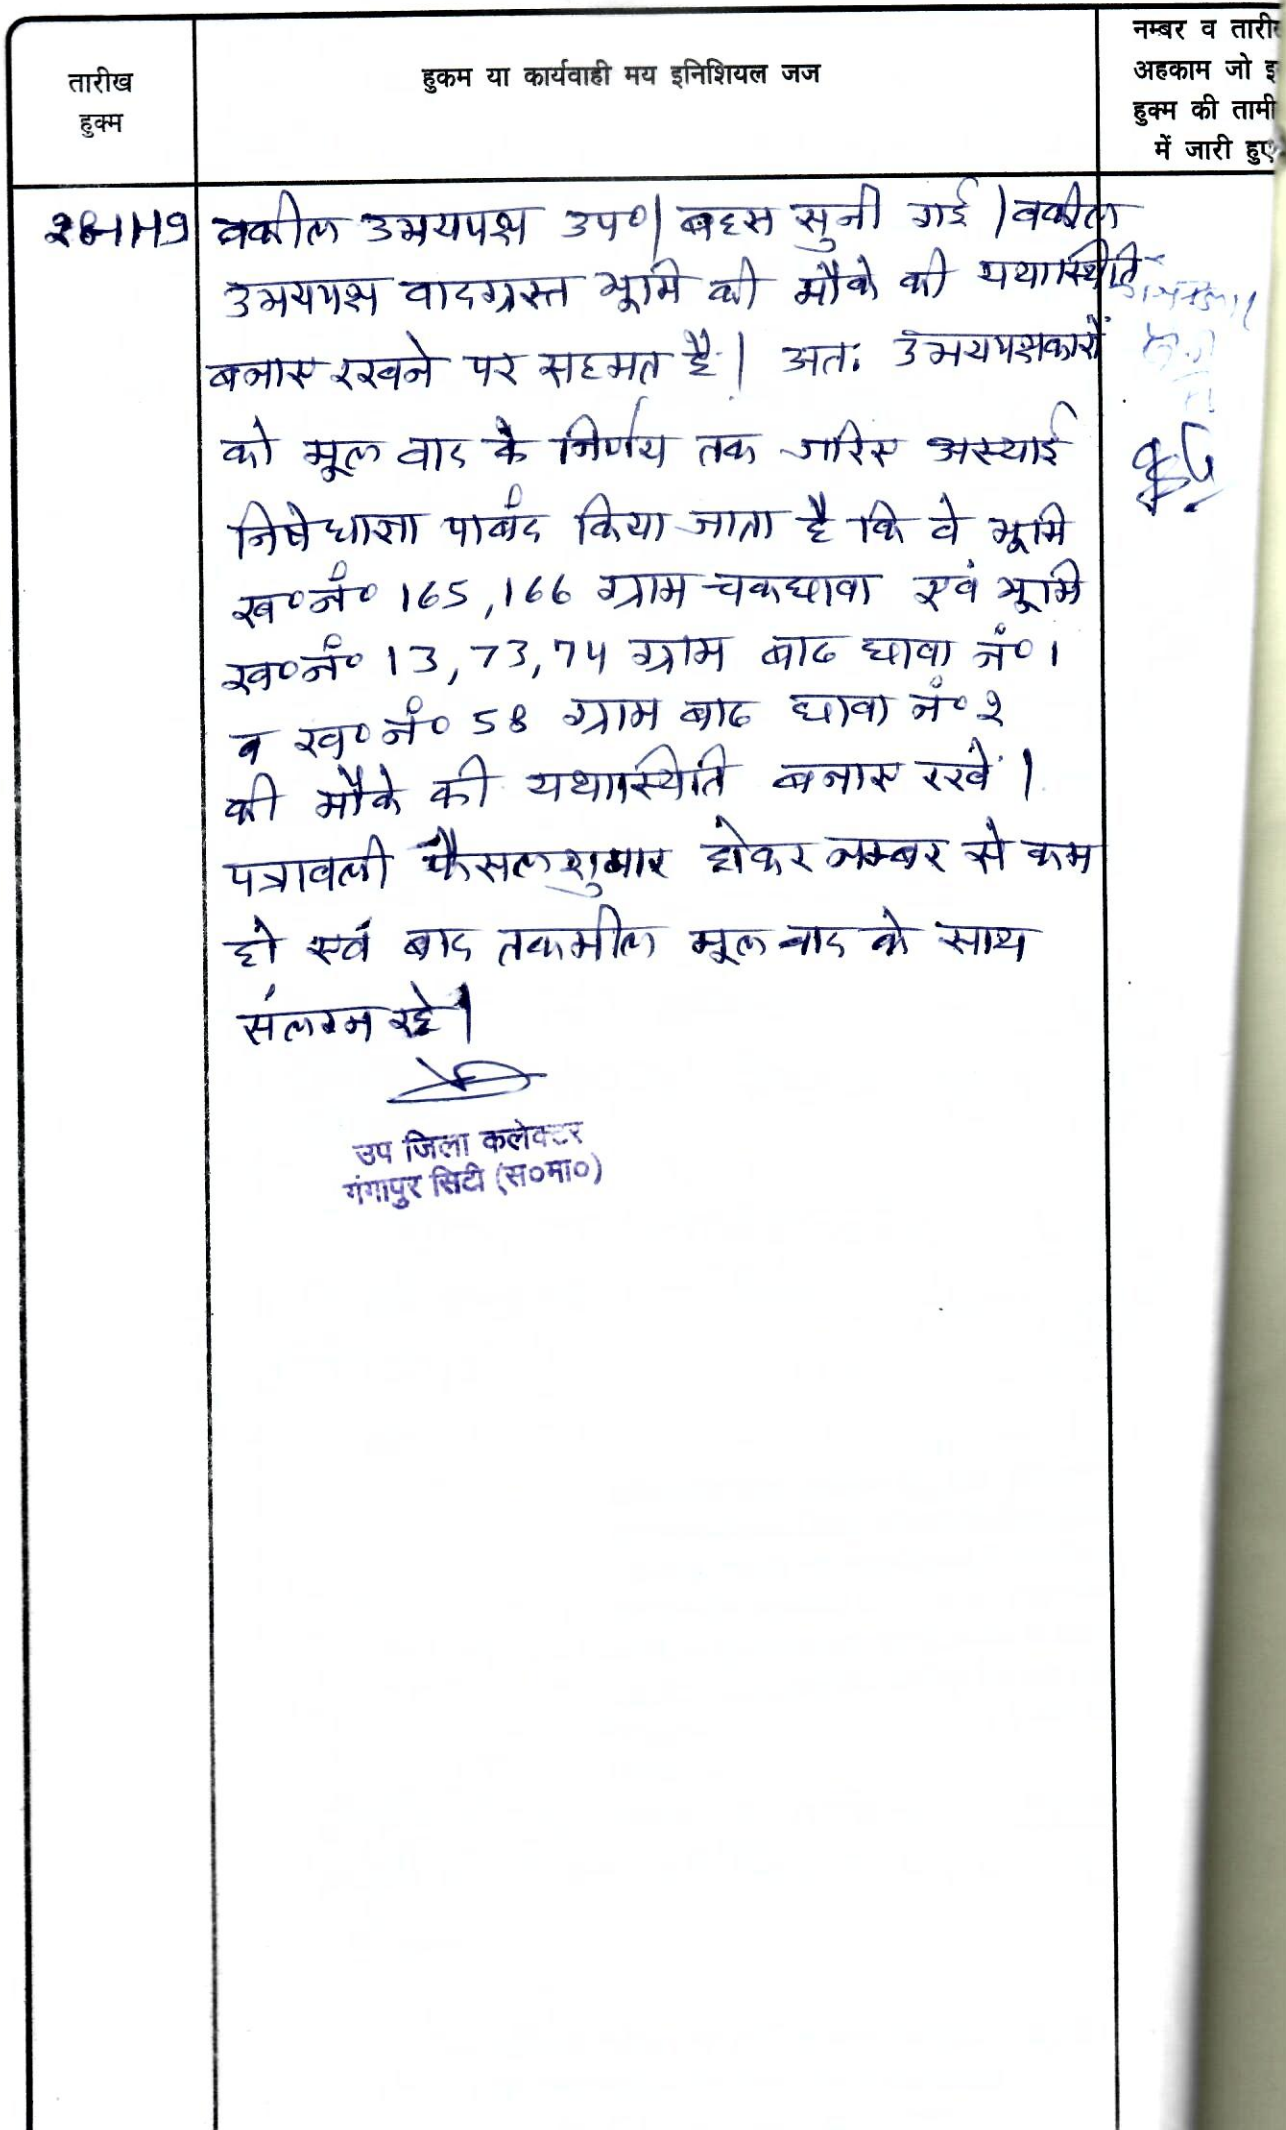 तारीख
हुक्म
हुकम या कार्यवाही मय इनिशियल जज
नम्बर व तारीख
अहकाम जो इ
हुक्म की तामी
में जारी हुए
वकील उभयपक्ष उप०। बहस सुनी गई। वकील
उभयपक्ष वादग्रस्त भूमि की मौके की यथास्थिति
बनाए रखने पर सहमत है। अतः उभयपक्षकारों
को मूल वाद के निर्णय तक जरिए अस्थाई
निषेधाज्ञा पाबंद किया जाता है कि वे भूमि
ख०नं० 165,166 ग्राम चकछावा एवं भूमि
ख०नं० 13,73,74 ग्राम बाढ छावा नं० 1
व ख०नं० 58 ग्राम बाढ छावा नं० 2
की मौके की यथास्थिति बनाए रखें।
पत्रावली फैसल शुमार होकर नम्बर से कम
हो एवं बाद तकमील मूल वाद के साथ
संलग्न रहे।
उप जिला कलेक्टर
गंगापुर सिटी (स०मा०)